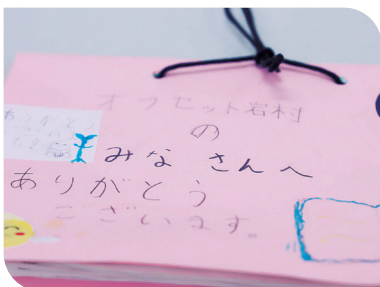 オフセット岩村
の
みなさんへ
ありがとう
ございます。
ありがとう